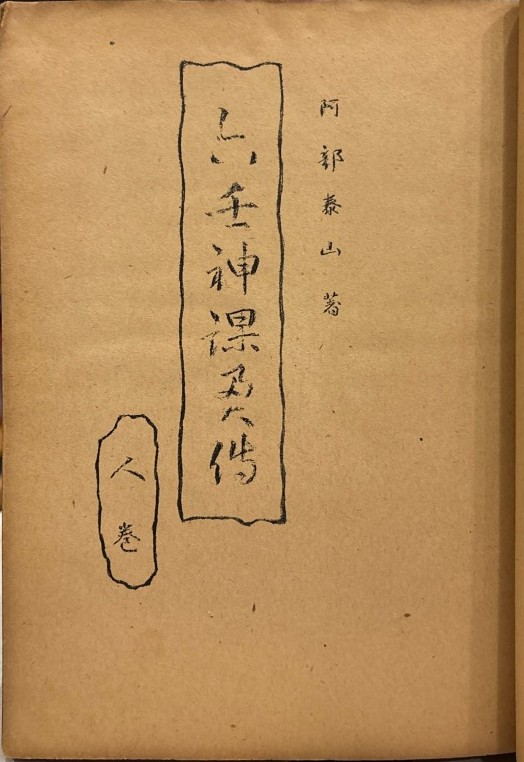 阿部泰山著
六壬神課奥傳
人巻